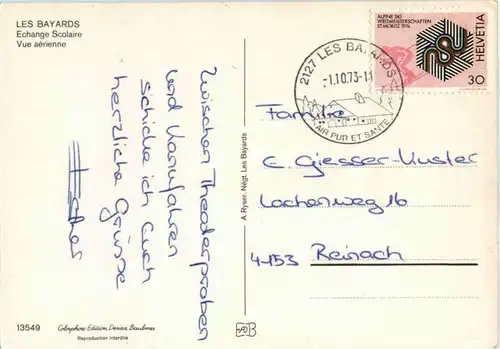 LES BAYARDS
Echange Scolaire
Vue aérienne
ALPINE SKI
WELTMEISTERSCHAFTEN
ST. MORITZ 1974
HELVETIA
30
2127 LES BAYARDS
-1.10.73-11
AIR PUR ET SANTE
Zwischen Theaterproben
und Kanufahren
schicke ich Euch
herzliche Grüsse
Familie
E. Giesser-Kuster
Locherweg 16
4153 Reinach
A. Ryser. Négt. Les Bayards
13549
Colorphoto Edition Deriaz Baulmes
Reproduction interdite